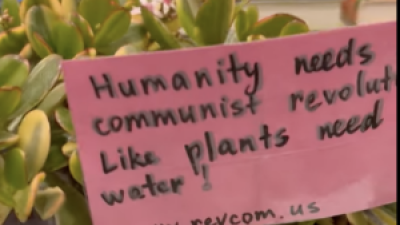 Humanity needs
communist revolut
Like plants need
water!
revcom.us